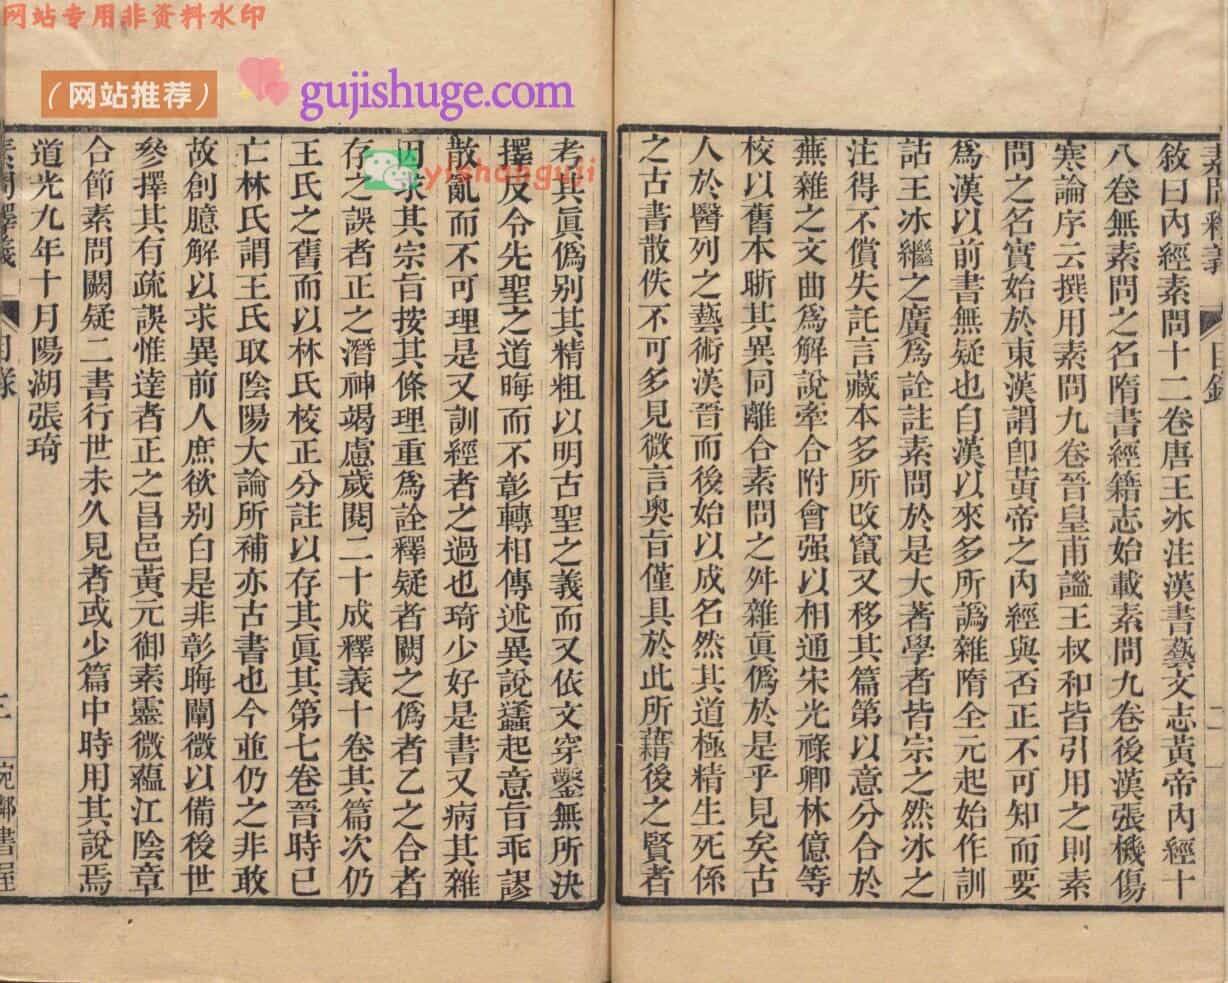 网站专用非资料水印
(网站推荐)
gujishuge.com
yizhanguji
素問釋義
目錄
二
敘曰內經素問十二卷唐王冰注漢書藝文志黃帝內經十
八卷無素問之名隋書經籍志始載素問九卷後漢張機傷
寒論序云撰用素問九卷晉皇甫謐王叔和皆引用之則素
問之名實始於東漢謂卽黃帝之內經與否正不可知而要
爲漢以前書無疑也自漢以來多所譌雜隋全元起始作訓
詁王冰繼之廣爲詮註素問於是大著學者皆宗之然冰之
注得不償失託言藏本多所改竄又移其篇第以意分合於
蕪雜之文曲爲解說牽合附會强以相通宋光祿卿林億等
校以舊本晰其異同離合素問之舛雜眞僞於是乎見矣古
人於醫列之藝術漢晉而後始以成名然其道極精生死係
之古書散佚不可多見微言奧旨僅具於此所藉後之賢者
考其眞僞别其精粗以明古聖之義而又依文穿鑿無所決
擇反令先聖之道晦而不彰轉相傳述異說蠭起意旨乖謬
散亂而不可理是又訓經者之過也琦少好是書又病其雜
因求其宗旨按其條理重爲詮釋疑者闕之僞者乙之合者
存之誤者正之潛神竭慮歲閱二十成釋義十卷其篇次仍
王氏之舊而以林氏校正分註以存其眞其第七卷晉時已
亡林氏謂王氏取陰陽大論所補亦古書也今並仍之非敢
故創臆解以求異前人庶欲别白是非彰晦闡微以備後世
參擇其有疏誤惟達者正之昌邑黃元御素靈微蘊江陰章
合節素問闕疑二書行世未久見者或少篇中時用其說焉
道光九年十月陽湖張琦
素問釋義
目錄
三
宛鄰書屋